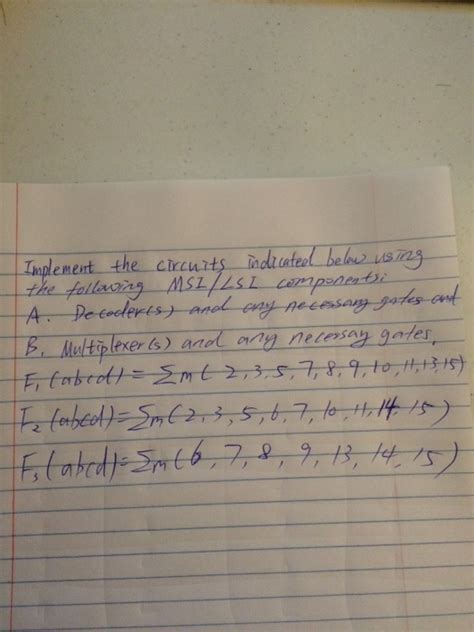 Implement the circuits indicated below using
the following MSI/LSI components:
A. Decoder(s) and any necessary gates and
B. Multiplexer(s) and any necessay gates.
F₁(abcd)=Σm( 2,3,5,7,8,9,10,11,13,15)
F₂(abcd)=Σm(2,3,5,6,7,10,11,14,15)
F₃(abcd)=Σm(6, 7, 8, 9, 13, 14, 15)